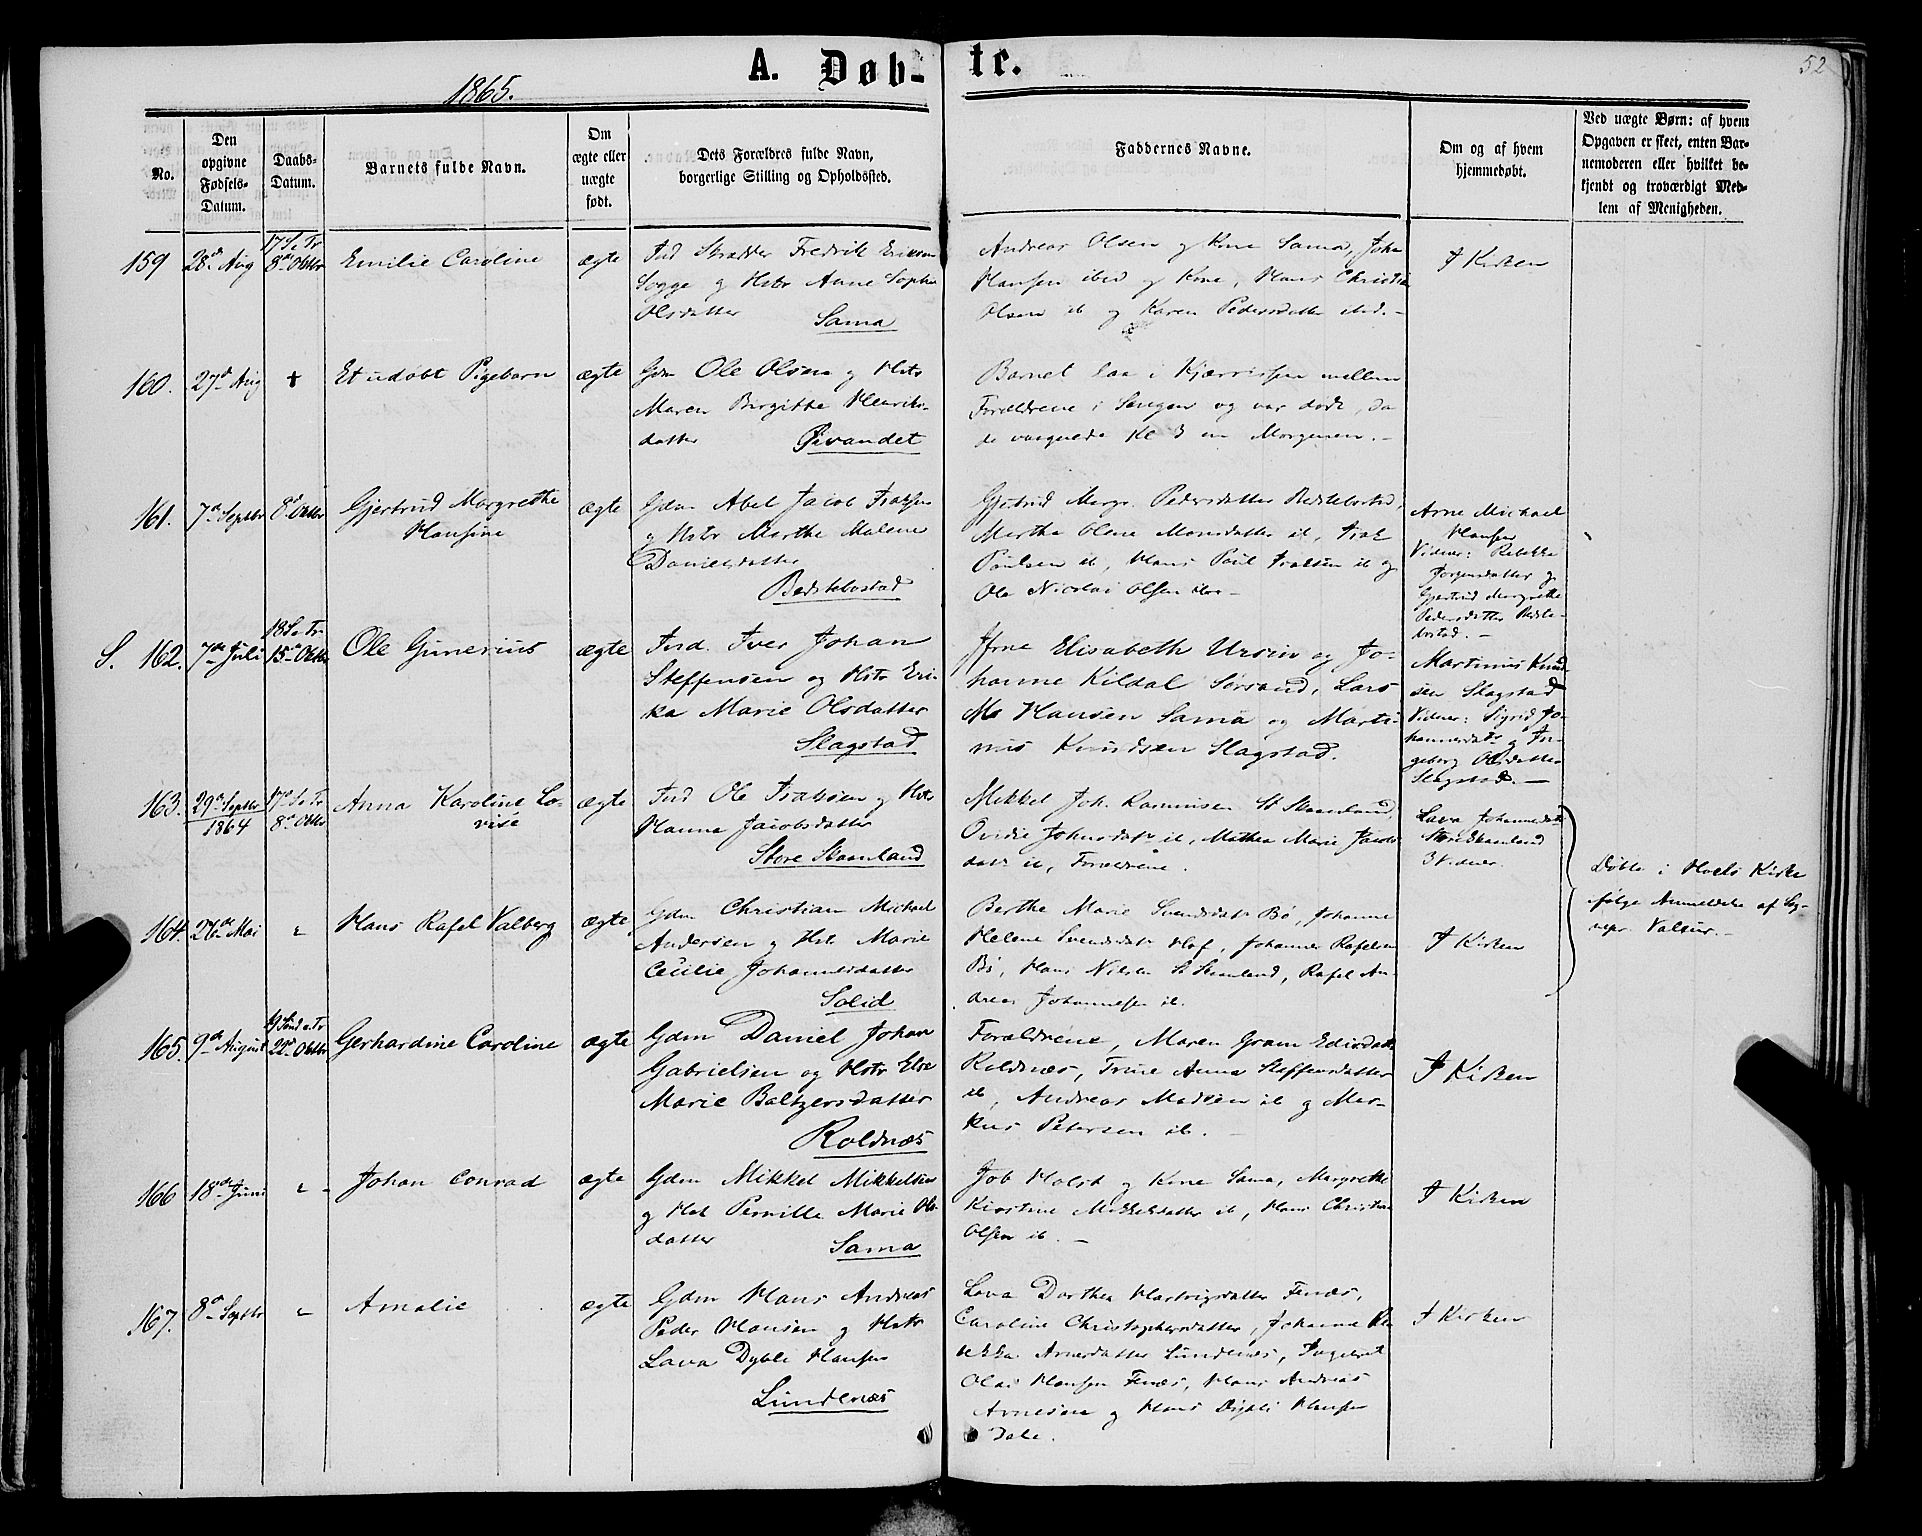 52
A. Døb-
te.
1865.
No.
Den opgivne Fødsels-Datum.
Daabs-Datum.
Barnets fulde Navn.
Om ægte eller uægte født.
Dets Forældres fulde Navn, borgerlige Stilling og Opholdssted.
Faddernes Navne.
Om og af hvem hjemmedøbt.
Ved uægte Børn: af hvem Opgaven er skeet, enten Barnemoderen eller hvilket bekjendt og troværdigt Medlem af Menigheden.
17 S. e Tr
159 28de Aug 8de Oktbr Emilie Caroline ægte
Ind Skrædder Fredrik Eriksen
Sogge og Hstr Anne Sophie
Olsdatter Sama
Andreas Olsen og Kone Sama, Joha
Hansen ibid og Kone, Hans Christia
Olsen ib og Karen Pedersdatter ibid. -
I Kirken
160. 27de Aug + Et udøbt Pigebarn ægte
Gdm Ole Olsen og Hstr
Maren Birgitte Henriks-
datter Øvandet
Barnet laa i mellem
Forældrene i Sengen og var dødt, da
de vaagnede Kl 3 om Morgenen. -
161. 7de Septbr 8de Oktbr Gjertrud Margrethe
Hansine
ægte
Gdm Abel Jacob Isaksen
og Hstr Marthe Malene
Danielsdatter
Bedstebostad
Gjertrud Margr. Pedersdatter Bedstebostad,
Marthe Olena Monsdatter ib, Isak
Paulsen ib, Hans Paul Isaksen ib og
Ole Nicolai Olsen
Arne Michael
Hansen
Vidner: Rebekka
Jørgensdatter og
Gjertrud Margrethe
Pedersdatter Bedste-
bostad. -
18 S. e Tr
S. 162. 7de Juli 15de Oktbr Ole Gunerius ægte
Ind. Iver Johan
Steffensen og Hstr Eri-
ka Marie Olsdatter
Slagstad
Elisabeth Ursin og Jo-
hanne Kildal Sørsand, Lars
Ms Hansen Sama og Marti-
nus Knudsen Slagstad.
Martinus Knud-
sen Slagstad
Vidner: Sigrid Jo-
hannesdatr og In-
geborg Olsdatter
Slagstad. -
163. 29de Septbr
1864
17de S. e Tr
8de Oktbr
Anna Karoline Lo-
vise
ægte
Ind Ole Isaksen og Hstr
Hanna Jacobsdatter
Store Skaanland
Mikkel Joh. Rasmusen St Skaanland,
Ovidie Johnsdatr ib, Mathea Marie Jacobs
datr ib, Forældrene.
Lava Johannesdatr
Storeskaanland
3 Vidner.
Døbte i Hols Kirke
ifølge Anmeldelse af Sg-
nepr. Valeur. -
164. 26de Mai " Hans Rafel Valberg ægte
Gdm Christian Michael
Andersen og Hstr Marie
Cecilie Johannesdatter
Solid
Berthe Marie Svendsdatr Bø, Johanne
Helene Svendsdatr Hof, Johannes Rafelsen
Bø, Hans Nilsen St Skanland, Rafel An-
dreas Johannessen ib.
I Kirken
19 Sønd e. Tr
165. 9de August 22de Oktbr Gerhardine Caroline ægte
Gdm Daniel Johan
Gabrielsen og Hstr Else
Marie Baltzersdatter
Roldnæs
Forældrene, Maren Gram Edisdatr
Roldnæs, Trine Anna Steffensdatter
ib, Andreas Madsen ib og Mar-
kus Petersen ib. -
I Kirken
166 18de Juni " Johan Conrad ægte
Gdm Mikkel Mikkelsen
og Hst Pernille Marie Ols
datter Sama
Job Holst og Kone Sama, Margrethe
Kirstine Mikkelsdatter ib, Hans Christian
Olsen ib. -
I Kirken
167. 8de Septbr " Amalie ægte
Gdm Hans Andreas
Peder Hansen og Hstr
Lava Dybli Hansen
Lundenæs
Lava Dorthea Hartvigsdatter Finæs,
Caroline Christophersdatter, Johanna Re
bekka Arnesdatter Lundenæs, Ingebret
Olai Hansen Finæs, Hans Andreas
Arnesen og Hans Dybli Hansen
Dale.
I Kirken